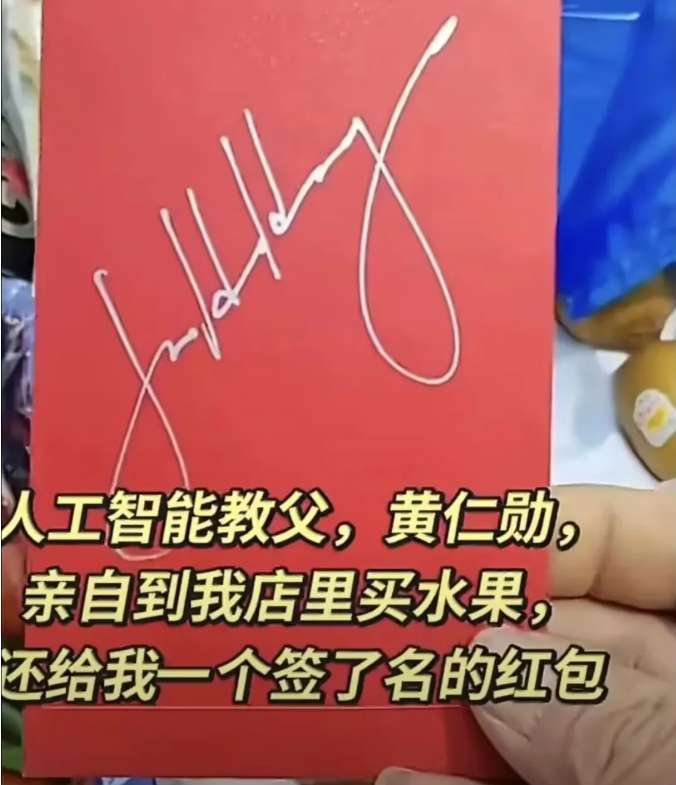 人工智能教父，黄仁勋，
亲自到我店里买水果，
还给我一个签了名的红包